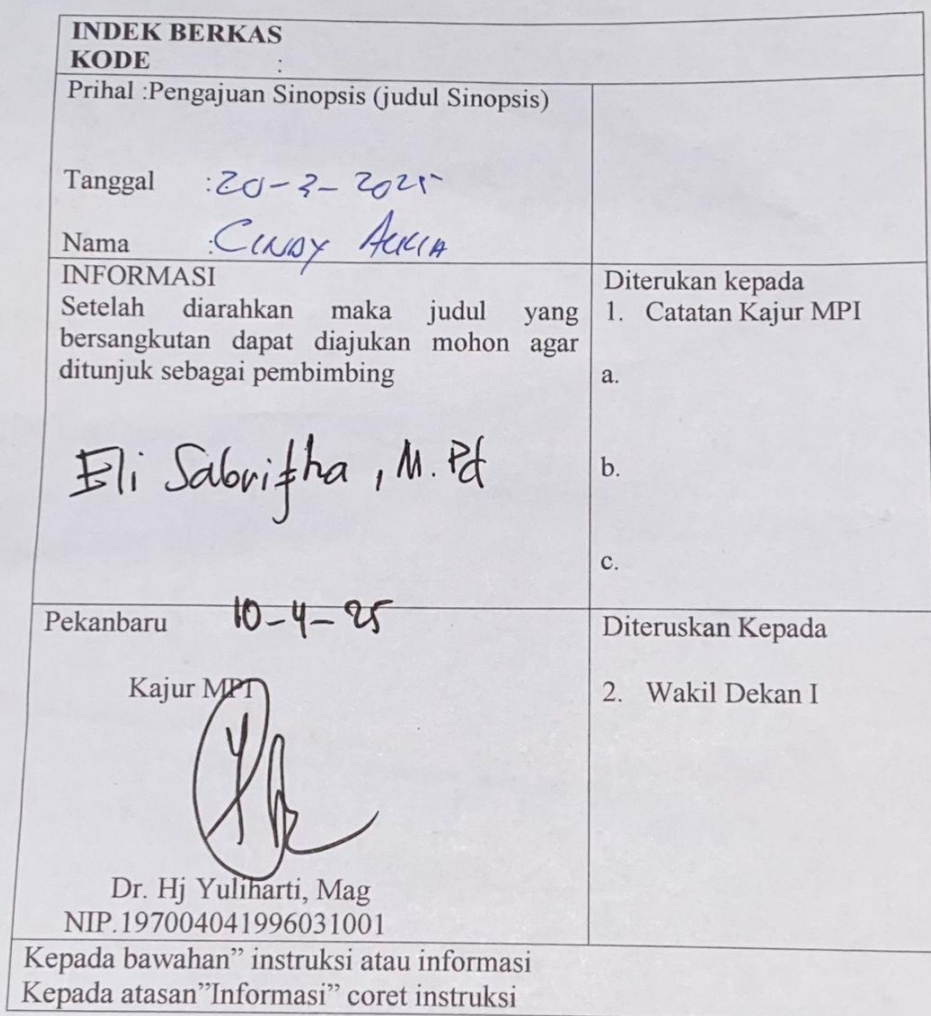 INDEK BERKAS
KODE :
Prihal :Pengajuan Sinopsis (judul Sinopsis)
Tanggal :20-3-2025
Nama :CINDY
INFORMASI
Setelah diarahkan maka judul yang
bersangkutan dapat diajukan mohon agar
ditunjuk sebagai pembimbing
Eli Sabrifha, M.Pd
Diterukan kepada
1. Catatan Kajur MPI
a.
b.
c.
Pekanbaru 10-4-25
Kajur MPI
Dr. Hj Yuliharti, Mag
NIP.197004041996031001
Diteruskan Kepada
2. Wakil Dekan I
Kepada bawahan” instruksi atau informasi
Kepada atasan”Informasi” coret instruksi